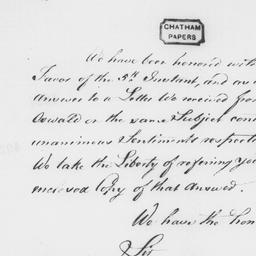 CHATHAM
PAPERS
We have been honored with
Favor of the 5th Instant, and
answer to a Letter We received from
Oswald on the same Subject
unanimous Sentiments
We take the Liberty of refering you
enclosed Copy of that Answer.
We have the hon
Sir